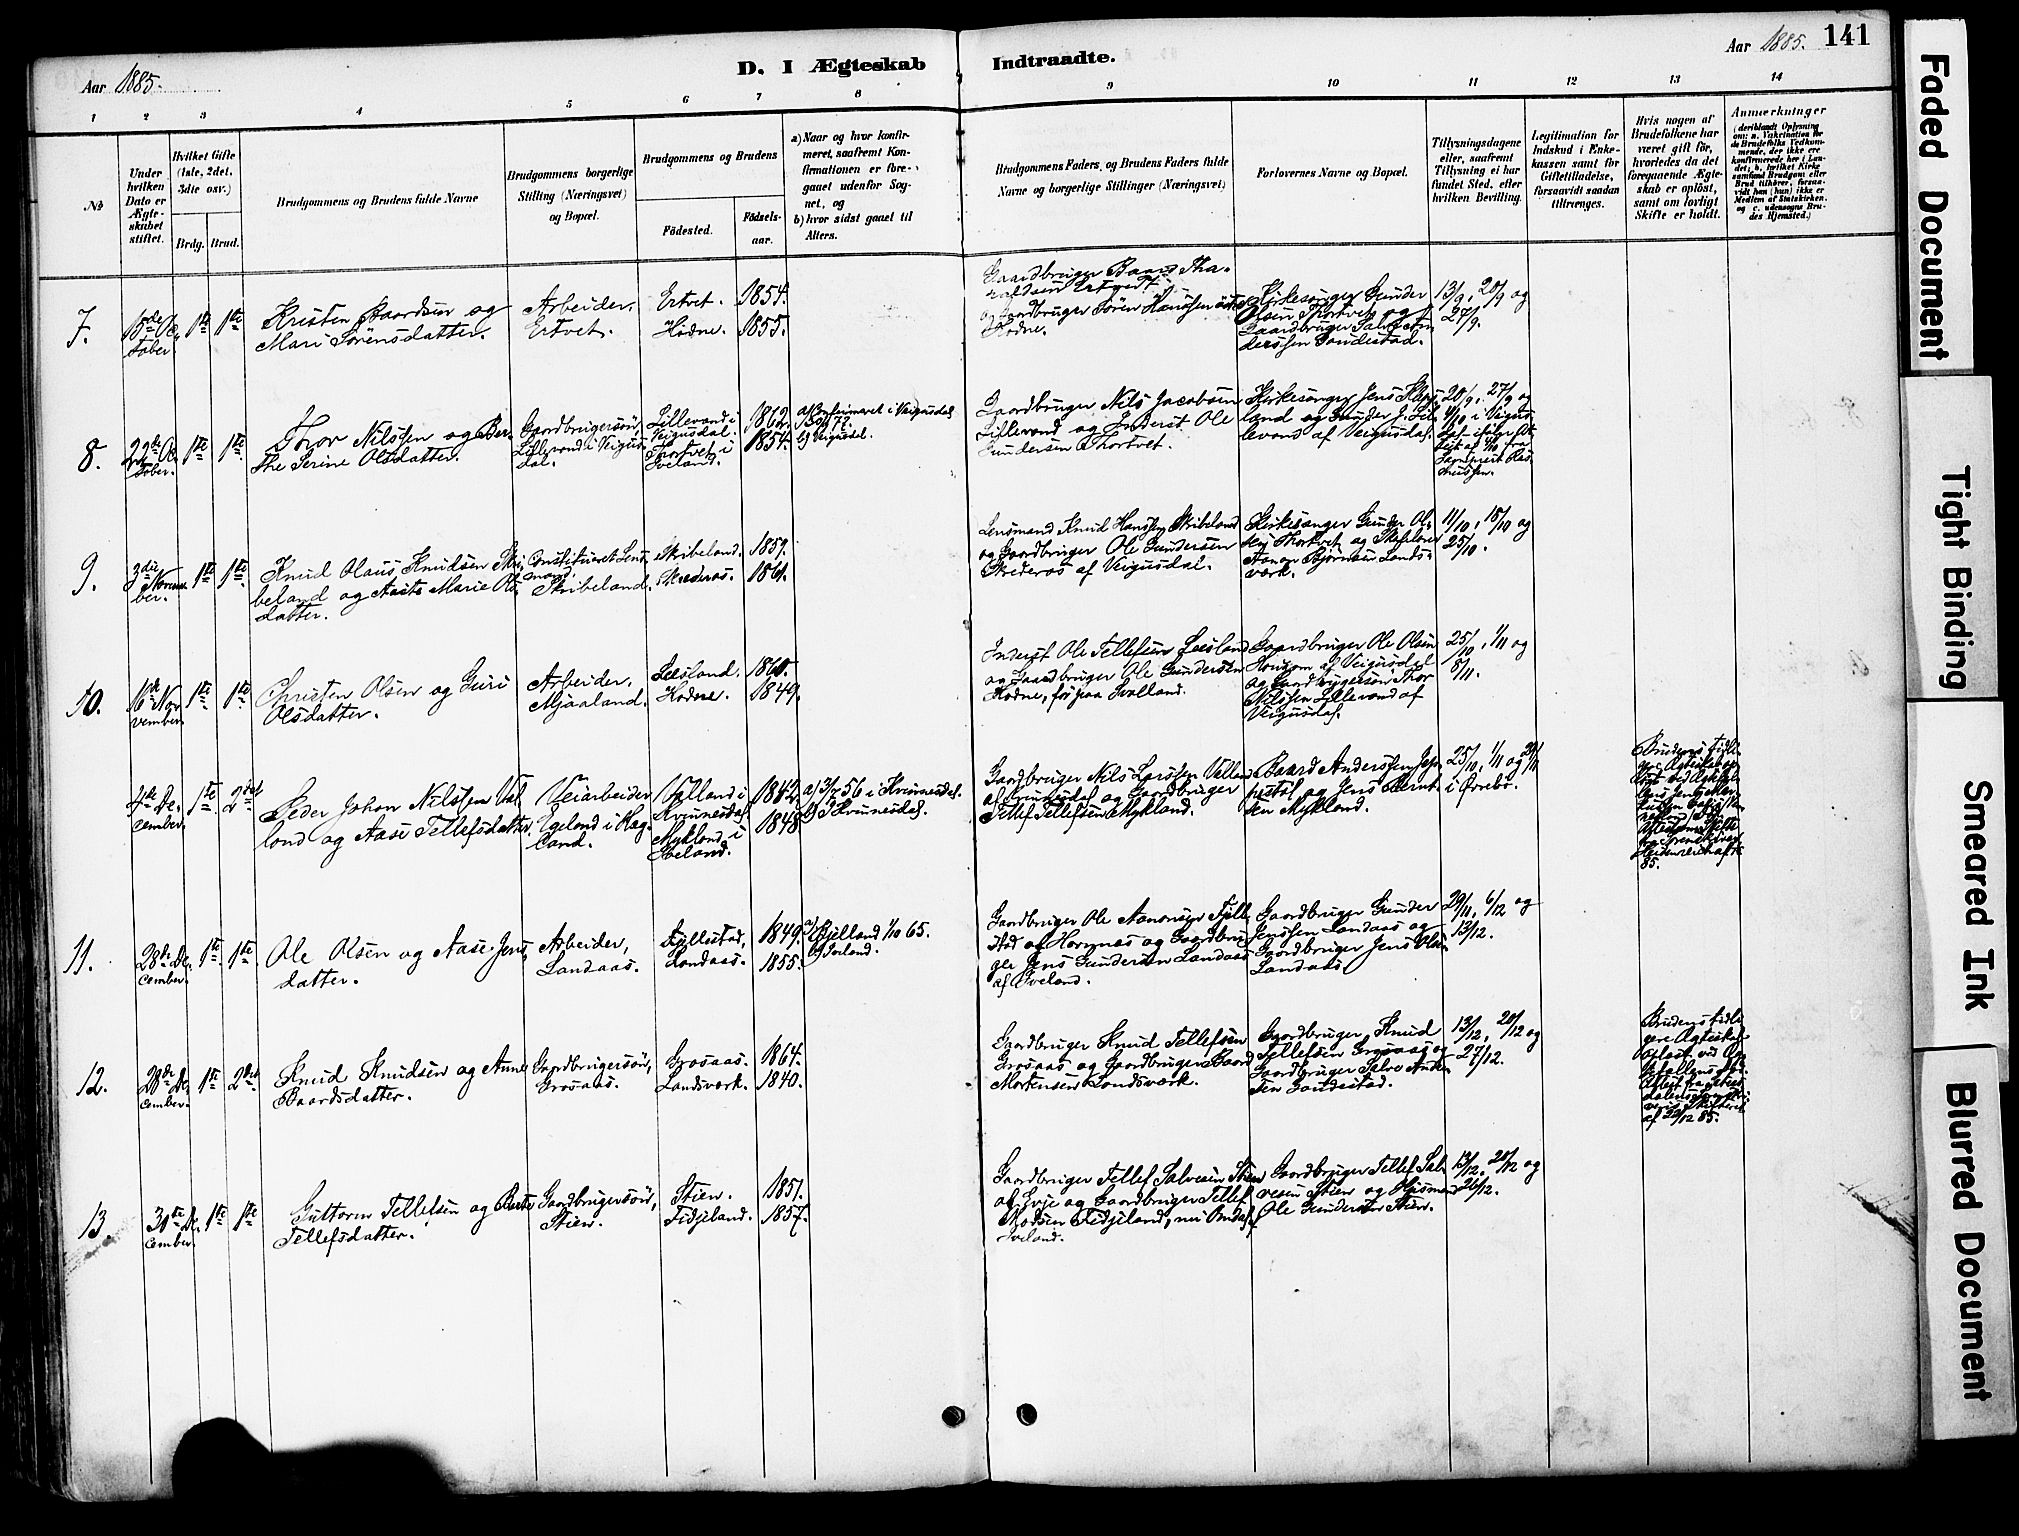 Aar 1885.
D. I Ægteskab Indtraadte.
Aar 1885. 141
1 2 3 4 5 6 7 8 9 10 11 12 13 14
No
Under
hvilken
Dato er
Ægte-
skabet
stiftet.
Hvilket Gifte
(1ste, 2det,
3die osv.)
Brdg. Brud.
Brudgommens og Brudens fulde Navne
Brudgommens borgerlige
Stilling (Næringsvei)
og Bopæl.
Brudgommens og Brudens
Födested.
Födsels-
aar.
a) Naar og hvor konfir-
meret, saafremt Kon-
firmationen er fore-
gaaet udenfor Sog-
net, og
b) hvor sidst gaaet til
Alters.
Brudgommens Faders, og Brudens Faders fulde
Navne og borgerlige Stillinger (Næringsvei)
Forlovernes Navne og Bopæl.
Tillysningsdagene
eller, saafremt
Tillysning ei har
fundet Sted, efter
hvilken Bevilling.
Legitimation for
Indskud i Enke-
kassen samt for
Giftetilladelse,
forsaavidt saadan
tiltrænges.
Hvis nogen af
Brudefolkene har
været gift för,
hvorledes da det
foregaaende Ægte-
skab er oplöst,
samt om lovligt
Skifte er holdt.
Anmærkninger
(deriblandt Oplysning
om: a. Vakcination for
de Brudefolks Vedkom-
mende, der ikke ere
konfirmerede her i Lan-
det; b. hvilket Kirke-
samfund Brudgom eller
Brud tilhörer, forsaa-
vidt han (hun) ikke er
Medlem af Statskirken,
og c. udensogns Bru-
des Hjemsted.)
7.
15de Oc-
tober.
1ste 1ste
Kristen Baardsen og
Mari Sörensdatter.
Arbeider.
Ertvet.
Ertvet.
Hodne.
1854.
1855.
Gaardbruger Baard Tha-
raldsen Ertvedt
og Gaardbruger Sören Hanssen
Hodne.
Kirkesanger Gunder
Olsen Thortvet og
Gaardbruger Salve An-
derssen Sandestad.
13/9, 20/9 og
27/9.
8.
22de Oc-
tober.
1ste 1ste
Thor Nilssen og Ber-
the Serine Olsdatter.
Gaardbrugersön,
Lillevand i Veigus-
dal.
Lillevand i
Veigusdal.
Thortvet i
Iveland.
1862.
1854.
a) Confirmeret i Veigusdal
b) Veigusdal.
Gaardbruger Nils Jacobsen
Lillevand og Inderst Ole
Gundersen Thortvet.
Kirkesanger Jens
land og Gunder J. Lil-
levand af Veigusdal.
20/9, 27/9 og
4/10 i Veigus-
9.
3die
Novem-
ber.
1ste 1ste
Knud Olaus Knudsen Skri-
beland og Aaste Marie Ols-
datter.
Constitueret Lens-
mand
Skribeland.
Skribeland.
Skrederos.
1859.
1861.
Lensmand Knud Hanssen Skribeland
og Gaardbruger Ole Gundersen
Skrederos af Veigusdal.
Kirkesanger Gunder Ol-
sen Thortvet og
Aanon Björnsen Lands-
værk.
11/10, 18/10 og
25/10.
10.
16de No-
vember.
1ste 1ste
Christen Olsen og Guri
Olsdatter.
Arbeider.
Mjaaland.
Leesland.
Hodne.
1860.
1849.
Inderst Ole Tellefsen Leesland
og Gaardbruger Ole Gundersen
Hodne, för paa
Gaardbruger Ole Olsen
af Veigusdal
og Gaardbrugersön Thor
Nilssen Lillevand af
Veigusdal.
25/10, 1/11 og
8/11.
4de De-
cember.
1ste 2det
Peder Johan Nilssen Val-
land og Aase Tellefsdatter.
Veiarbeider
Egeland i Hæg-
land.
Valland i
Kvinnesdal.
Mykland i
Iveland.
1842.
1848.
a) 56 i Kvinnesdal.
b) Kvinnesdal.
Gaardbruger Nils Larssen Valland
af Kvinnesdal og Gaardbruger
Tellef Tellefsen Mykland.
Baard Anderssen
og Jens Bernt-
sen Mykland.
25/10, 1/11 og
i Övrebö.
Brudens tidli-
gere Ægteskab
85.
11.
28de De-
cember.
1ste 1ste
Ole Olsen og Aase Jens-
datter.
Arbeider,
Landaas.
Fjellestad,
Landaas.
1849.
1855.
a) Bjelland 1/10 65.
Gaardbruger Ole Aanonsen Fjelle-
stad af Hornnes og Gaardbru-
ger Jens Gundersen Landaas
af Iveland.
Gaardbruger Gunder
Jenssen Landaas og
Gaardbruger Jens Olsen
Landaas
29/11, 6/12 og
13/12.
12.
28de De-
cember.
1ste 2det
Knud Knudsen og Anne
Baardsdatter.
Gaardbrugersön,
Grosaas.
Grosaas.
Landsværk.
1864.
1840.
Gaardbruger Knud Tellefsen
Grosaas og Gaardbruger Baard
Mortensen Landsværk.
Gaardbruger Knud
Tellefsen Grosaas og
Gaardbruger Salve Ander-
sen Sandestad.
13/12, 20/12 og
27/12.
Brudens tidli-
gere Ægteskab
oplöst ved
af 22/12 85.
13.
31te De-
cember.
1ste 1ste
Guttorm Tellefsen og Berte
Tellefsdatter.
Gaardbrugersön,
Stien.
Stien.
Fidjeland.
1851.
1857.
Gaardbruger Tellef Salvesen Stien
af Evje og Gaardbruger Tellef
Fidjeland, nu
Iveland.
Gaardbruger Tellef Sal-
vesen Stien og Husmand
Ole Gundersen Stien.
13/12, 20/12 og
26/12.
Faded Document
Tight Binding
Smeared Ink
Blurred Document